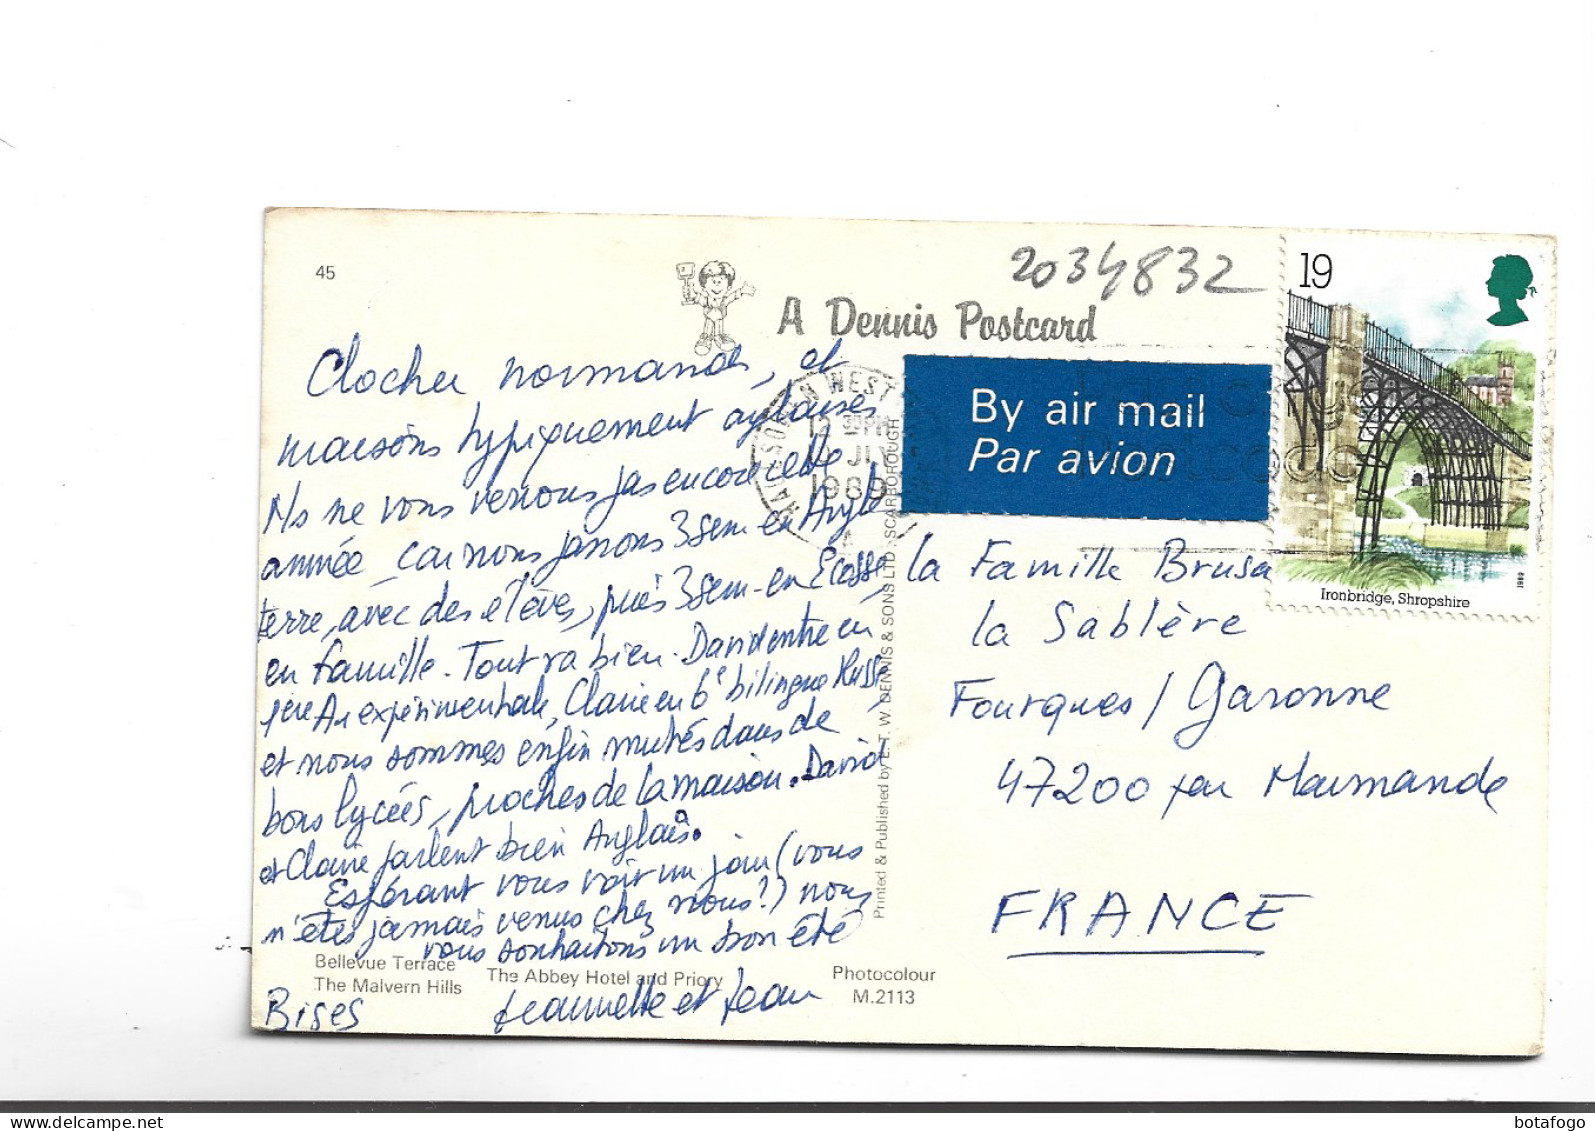 45
2034832
19
A Dennis Postcard
Clocher normand, et
maisons typiquement anglaises
Ns ne vous verrons pas encore cette
année, car nous passons 3 sem en Angle
terre, avec des élèves, puis 3 sem en Ecosse,
en famille. Tout va bien. David entre en
1ère A1 expérimentale, Claire en 6e bilingue Russe,
et nous sommes enfin mutés dans de
bons lycées, proches de la maison. David
et Claire parlent bien Anglais.
Espérant vous voir un jour (vous
n'êtes jamais venus chez nous?) nous
vous souhaitons un bon été
Bises Jeannette et Jean
WEST
30 PM
JLY
1989
By air mail
Par avion
Postcode
Ironbridge, Shropshire
1989
la Famille Brusa
la Sablère
Fourques / Garonne
47200 par Marmande
FRANCE
Printed & Published by E. T. W. DENNIS & SONS LTD., SCARBOROUGH
Bellevue Terrace
The Malvern Hills
The Abbey Hotel and Priory
Photocolour
M.2113
botafogo